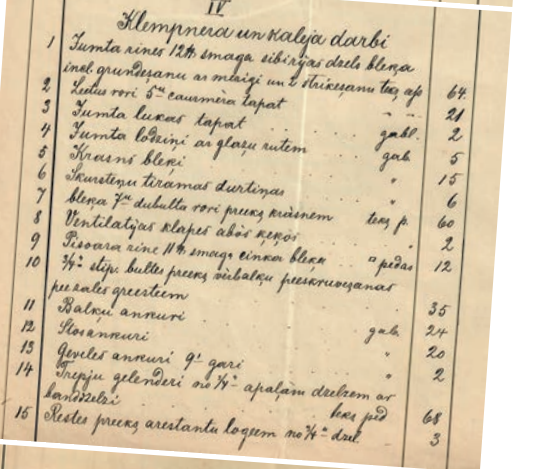 IV
Klempnera un kaleja darbi
1 Jumta rines 12 ℔ smaga sibirijas dzels blekja
inkl. grundešanu ar menigi un 2 strikešanu tek. ass 64.
2 Leetus rori 5" caurmēra tapat " " 21
3 Jumta lukas tapat gabl. 2
4 Jumta lodziņi ar glazu rutem gab. 5
5 Krasns blekji " 15
6 Skursteņu tiramas durtiņas " 6
7 blekja 7" dubulta rori preekš krāsnem tekš p. 60
8 Ventilatijas klapes abös " 2
9 Pisoara rine 11 ℔ smaga cinka blekja " pedas 12
10 3/4" stip. bultes preekš peeskruvešanas
pee zales greesteem 35
11 Balķu ankuri gab. 24
12 Stosankuri " 20
13 Geveles ankuri 9' gari " 2
14 Trepju gelenderi no 1/4" apaļam dzelzem ar
bandzelzi teks ped 68
15 Restes preekš arestantu logeem no 3/4" dzel. 3